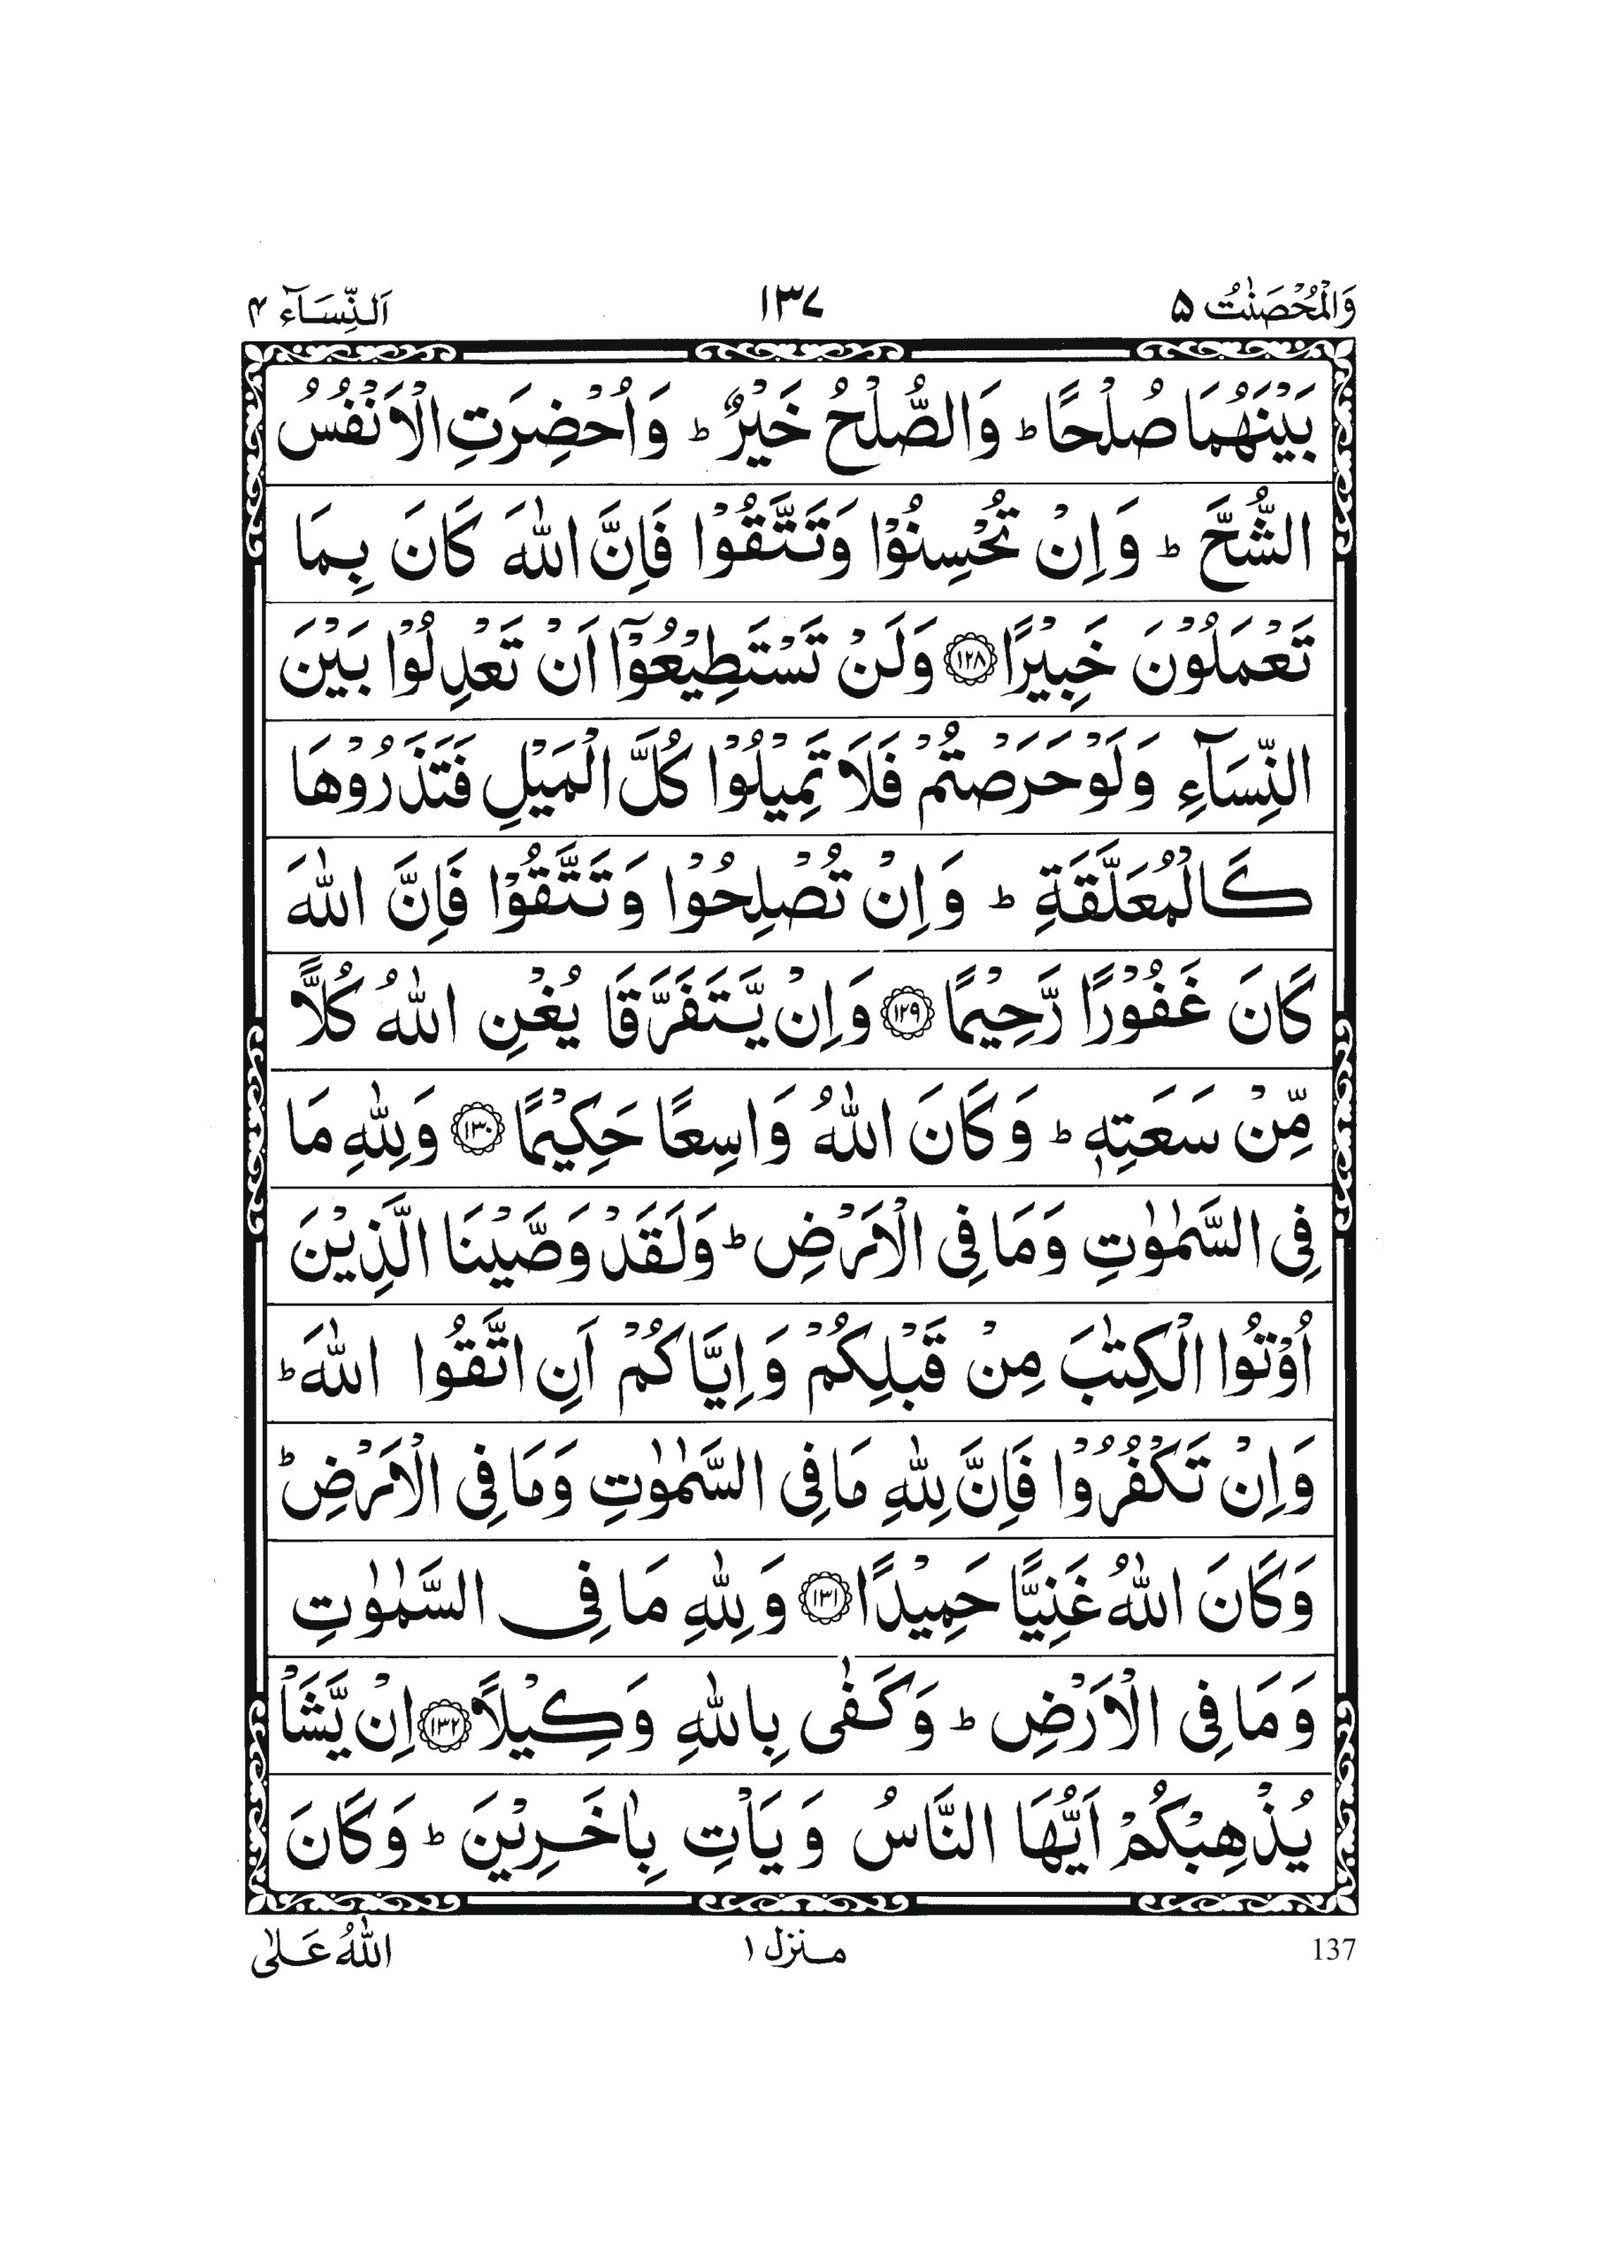 وَالْمُحْصَنٰتُ ۵ ۱۳۷ اَلنِّسَآء ۴
بَيْنَهُمَا صُلْحًا ؕ وَالصُّلْحُ خَيْرٌ ؕ وَاُحْضِرَتِ الْاَنْفُسُ
الشُّحَّ ؕ وَاِنْ تُحْسِنُوْا وَتَتَّقُوْا فَاِنَّ اللّٰهَ كَانَ بِمَا
تَعْمَلُوْنَ خَبِيْرًا ﴿۱۲۸﴾ وَلَنْ تَسْتَطِيْعُوْٓا اَنْ تَعْدِلُوْا بَيْنَ
النِّسَآءِ وَلَوْ حَرَصْتُمْ فَلَا تَمِيْلُوْا كُلَّ الْمَيْلِ فَتَذَرُوْهَا
كَالْمُعَلَّقَةِ ؕ وَاِنْ تُصْلِحُوْا وَتَتَّقُوْا فَاِنَّ اللّٰهَ
كَانَ غَفُوْرًا رَّحِيْمًا ﴿۱۲۹﴾ وَاِنْ يَّتَفَرَّقَا يُغْنِ اللّٰهُ كُلًّا
مِّنْ سَعَتِهٖ ؕ وَكَانَ اللّٰهُ وَاسِعًا حَكِيْمًا ﴿۱۳۰﴾ وَلِلّٰهِ مَا
فِى السَّمٰوٰتِ وَمَا فِى الْاَرْضِ ؕ وَلَقَدْ وَصَّيْنَا الَّذِيْنَ
اُوْتُوا الْكِتٰبَ مِنْ قَبْلِكُمْ وَاِيَّاكُمْ اَنِ اتَّقُوا اللّٰهَ ؕ
وَاِنْ تَكْفُرُوْا فَاِنَّ لِلّٰهِ مَا فِى السَّمٰوٰتِ وَمَا فِى الْاَرْضِ ؕ
وَكَانَ اللّٰهُ غَنِيًّا حَمِيْدًا ﴿۱۳۱﴾ وَلِلّٰهِ مَا فِى السَّمٰوٰتِ
وَمَا فِى الْاَرْضِ ؕ وَكَفٰى بِاللّٰهِ وَكِيْلًا ﴿۱۳۲﴾ اِنْ يَّشَاْ
يُذْهِبْكُمْ اَيُّهَا النَّاسُ وَيَاْتِ بِاٰخَرِيْنَ ؕ وَكَانَ
137 منزل ۱ اللّٰهُ عَلٰى